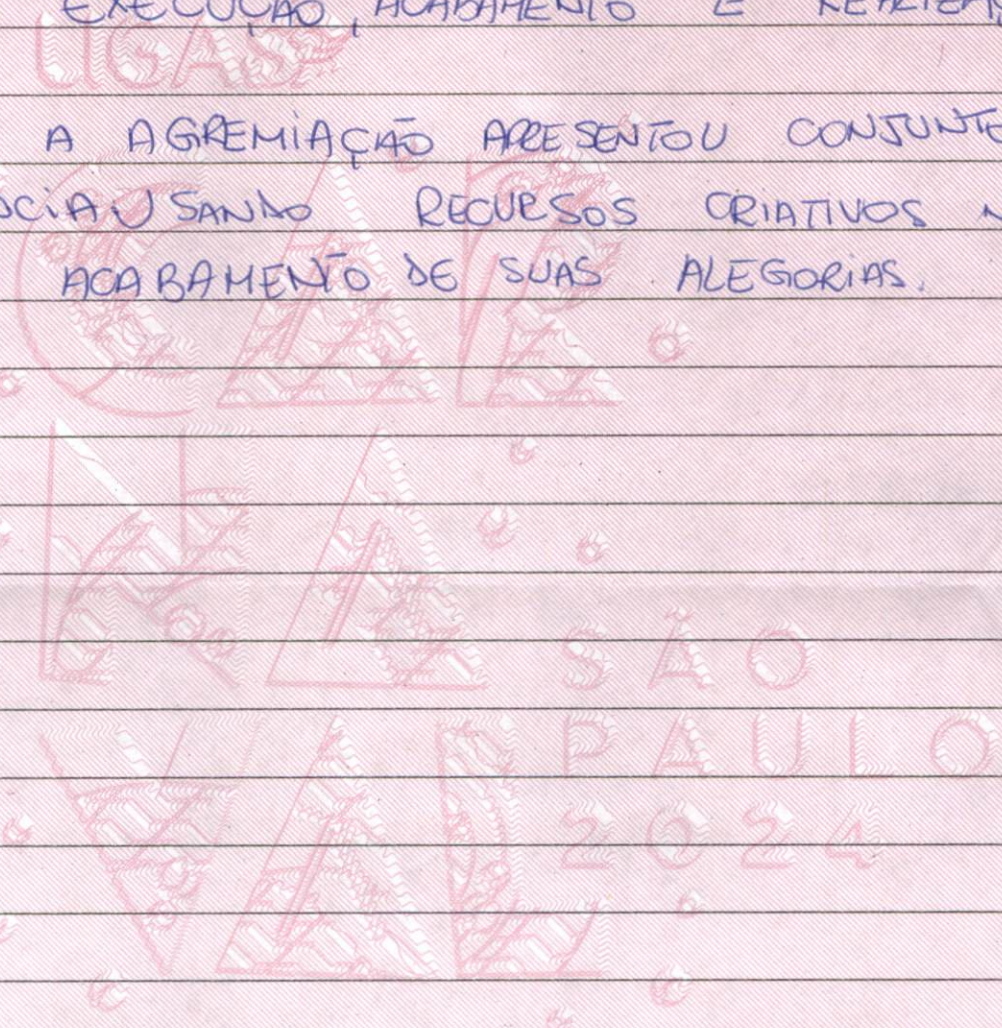 EXECUÇÃO, ACABAMENTO E
LIGASP
A AGREMIAÇÃO APRESENTOU CONJUNTO
USANDO RECURSOS CRIATIVOS
ACABAMENTO DE SUAS ALEGORIAS.
CAR
NA
SÃO
VAL
PAULO
2024